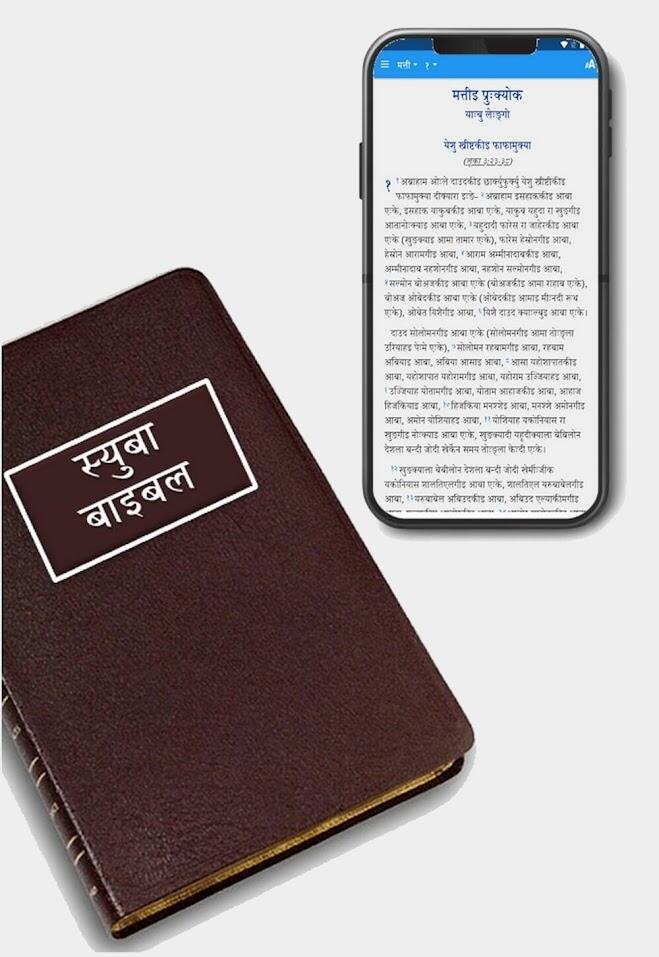 स्युबा
बाइबल
मत्ती १
AA
मत्तीइ प्रुःक्योक
याःबु लेःङ्गो
येशु ख्रीष्टकीइ फाफामुक्या
(लूका ३:२३-३८)
१ १ अब्राहाम ओःले दाउदकीइ छार्क्युफुर्क्यु येशु ख्रीष्टीकीइ
फाफामुक्या दीक्यारा इःङे- २ अब्राहाम इसहाककीइ आबा
एःके, इसहाक याकुबकीइ आबा एःके, याकुब यहुदा रा खुङगीइ
आतानोःक्याइ आबा एःके, ३ यहुदादी फारेस रा जाहेरकीइ आबा
एःके (खुङक्याइ आमा तामार एःके), फारेस हेस्रोनगीइ आबा,
हेस्रोन आरामगीइ आबा, ४ आराम अम्मीनादाबकीइ आबा,
अम्मीनादाब नहशोनगीइ आबा, नहशोन सल्मोनगीइ आबा,
५ सल्मोन बोअजकीइ आबा एःके (बोअजकीइ आमा राहाब एःके),
बोअज ओबेदकीइ आबा एःके (ओबेदकीइ आमाइ मीःनदी रूथ
एःके), ओबेत यिशैगीइ आबा, ६ यिशै दाउद क्याःल्बुइ आबा एःके।
दाउद सोलोमनगीइ आबा एःके (सोलोमनगीइ आमा तोःङ्ला
उरियाहइ पेःमे एःके), ७ सोलोमन रहबामगीइ आबा, रहबाम
अबियाइ आबा, अबिया आसाइ आबा, ८ आसा यहोशापातकीइ
आबा, यहोशापात यहोरामगीइ आबा, यहोराम उज्जियाहइ आबा,
९ उज्जियाह योतामगीइ आबा, योताम आहाजकीइ आबा, आहाज
हिजकियाइ आबा, १० हिजकिया मनश्शेइ आबा, मनश्शे अमोनगीइ
आबा, अमोन योशियाहइ आबा, ११ योशियाह यकोनियास रा
खुङगीइ नोःक्याइ आबा एःके, खुङक्यादी यहूदीक्याला बेबिलोन
देशला बन्दी जोदी खेर्केन समय तोःङ्ला केःदी एःके।
१२ खुङक्याला बेबीलोन देशला बन्दी जोदी खेर्मीःजीक
यकोनियास शालतिएलगीइ आबा एःके, शालतिएल यरुबाबेलगीइ
आबा, १३ यरुबाबेल अबिउदकीइ आबा, अबिउद एल्याकीमगीइ